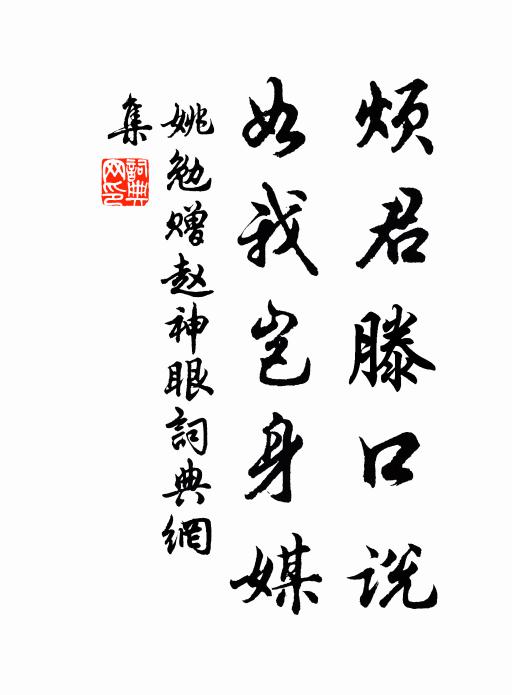 烦君滕口说
如我岂身媒
姚勉赠赵神眼詞典網
集
詞典网印